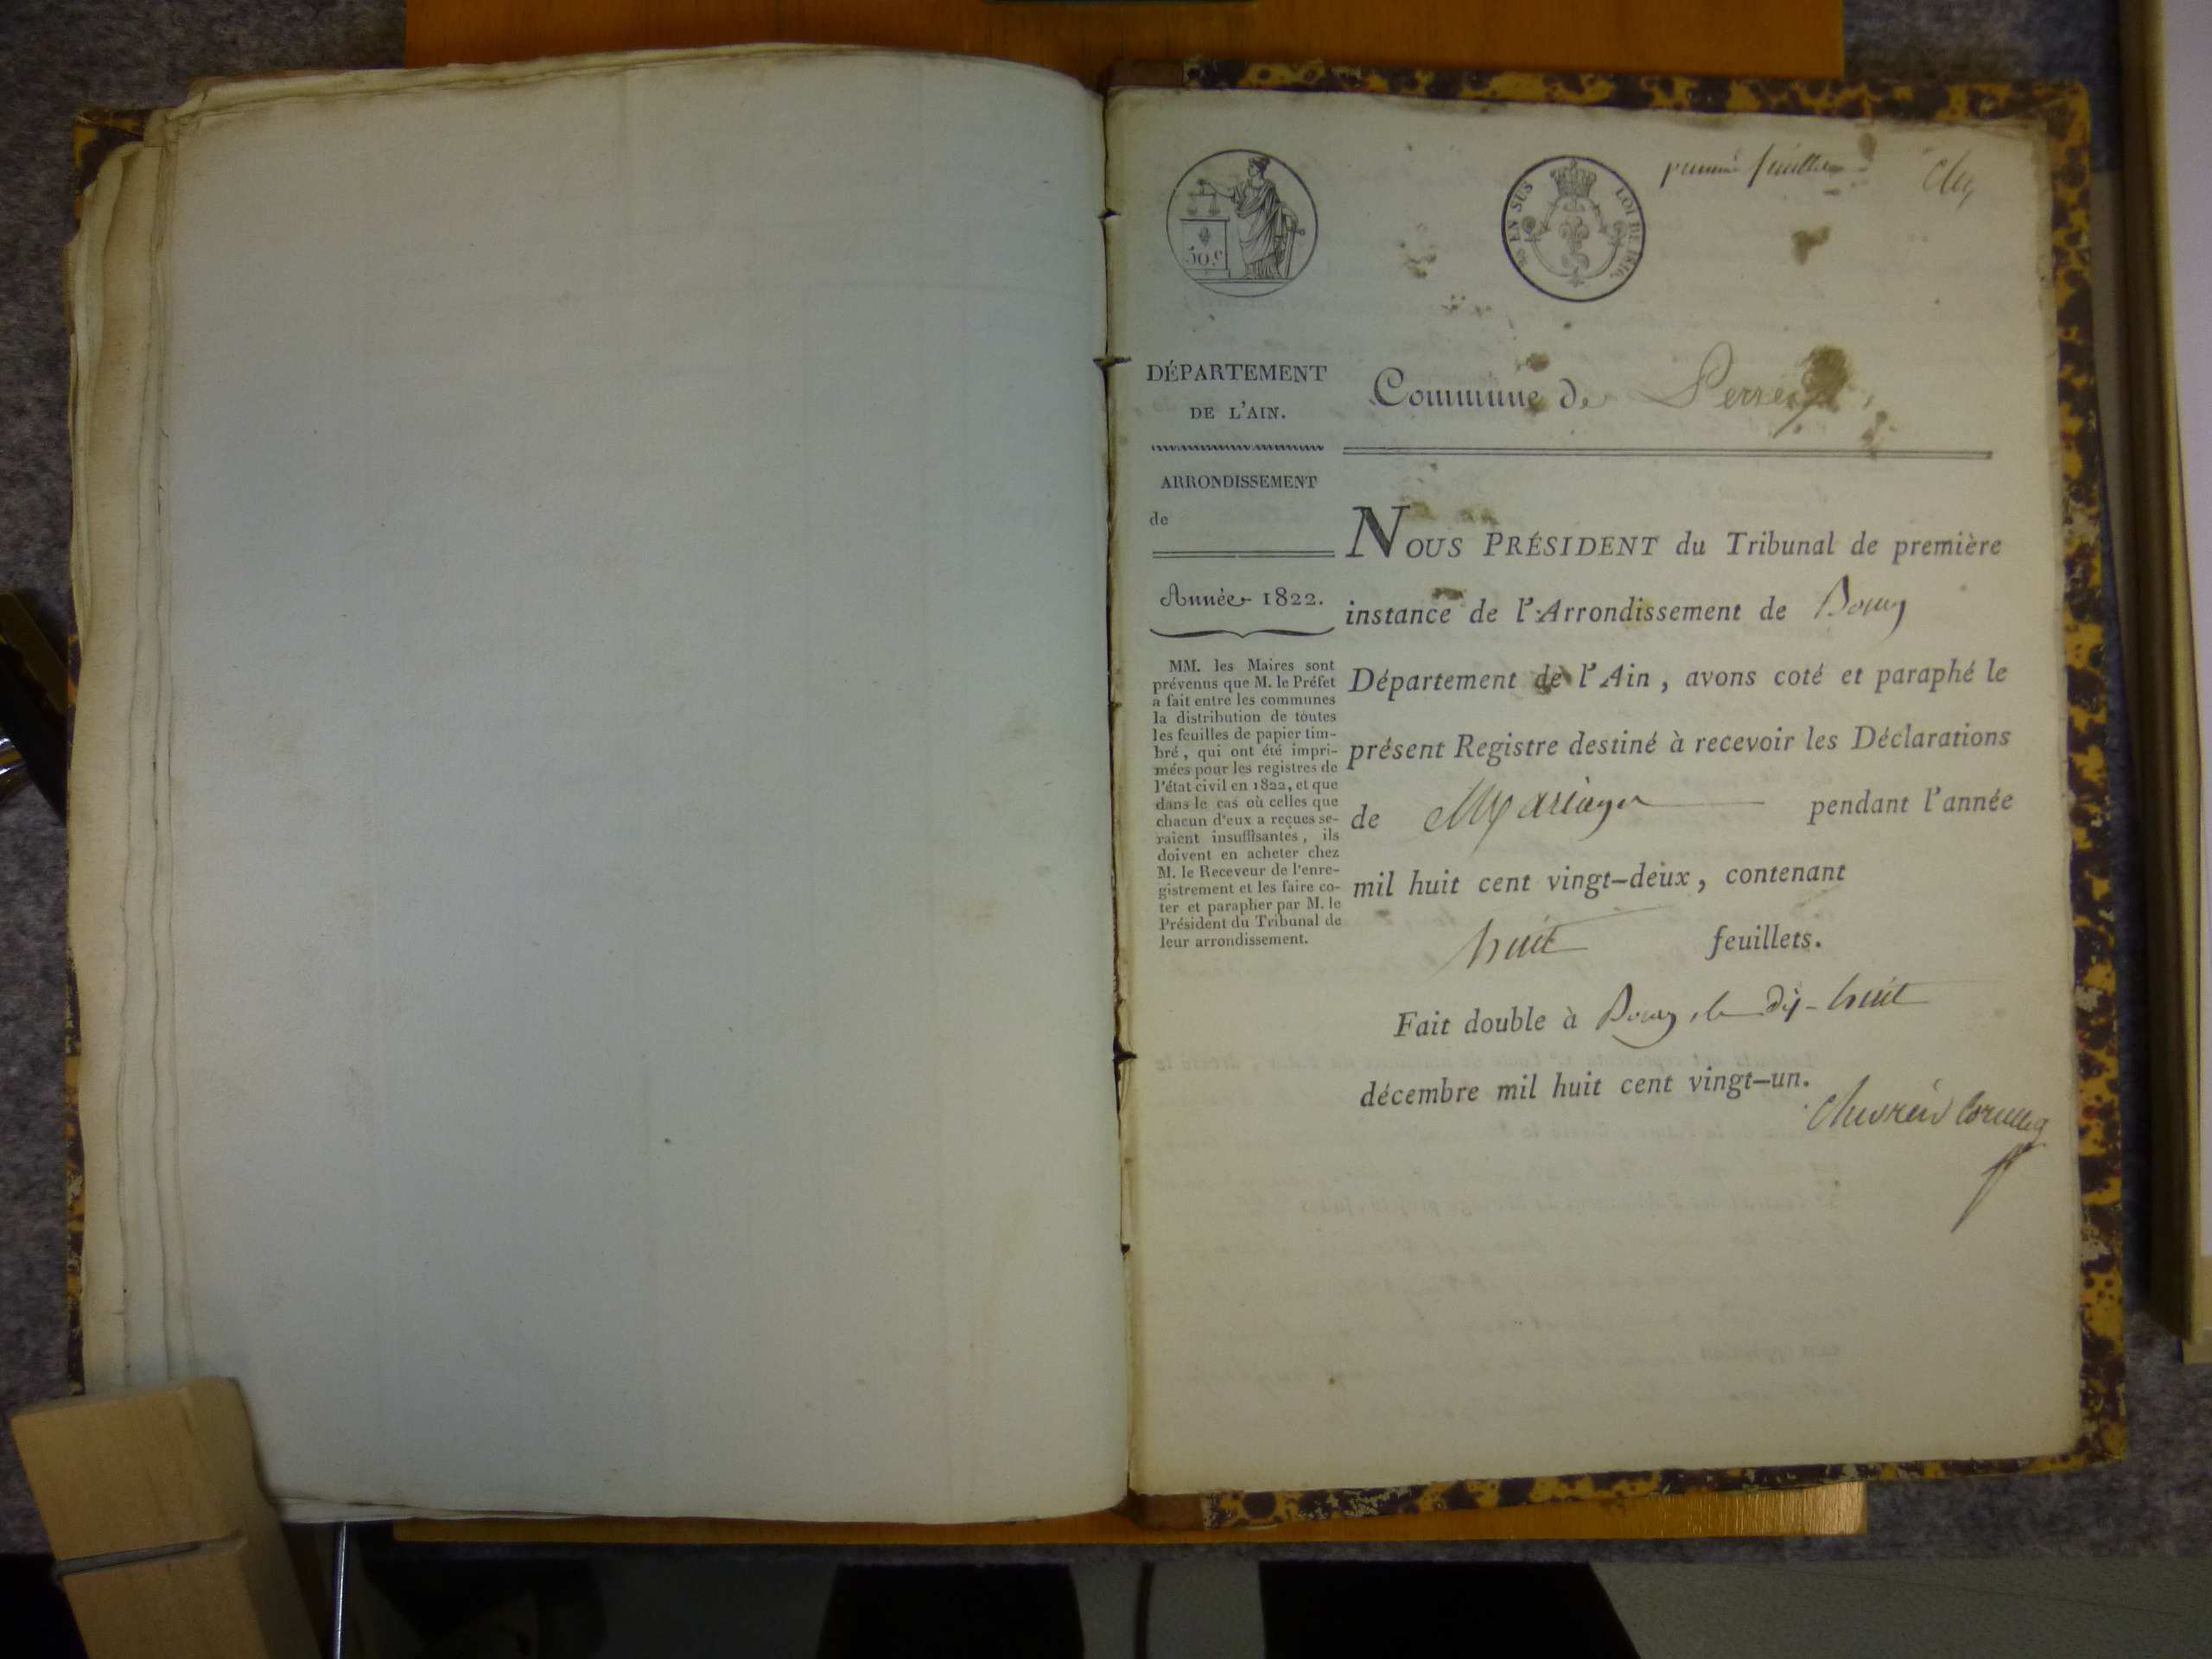 premier feuillet
50 c
30 EN SUS
LOI DE 1816.
DÉPARTEMENT
DE L'AIN.
ARRONDISSEMENT
de
Année 1822.
MM. les Maires sont
prévenus que M. le Préfet
a fait entre les communes
la distribution de toutes
les feuilles de papier tim-
bré, qui ont été impri-
mées pour les registres de
l'état civil en 1822, et que
dans le cas où celles que
chacun d'eux a reçues se-
raient insuffisantes, ils
doivent en acheter chez
M. le Receveur de l'enre-
gistrement et les faire co-
ter et parapher par M. le
Président du Tribunal de
leur arrondissement.
Commune de
NOUS PRÉSIDENT du Tribunal de première
instance de l'Arrondissement de Bourg
Département de l'Ain, avons coté et paraphé le
présent Registre destiné à recevoir les Déclarations
de Mariages pendant l'année
mil huit cent vingt-deux, contenant
huit feuillets.
Fait double à Bourg, le dix-huit
décembre mil huit cent vingt-un.